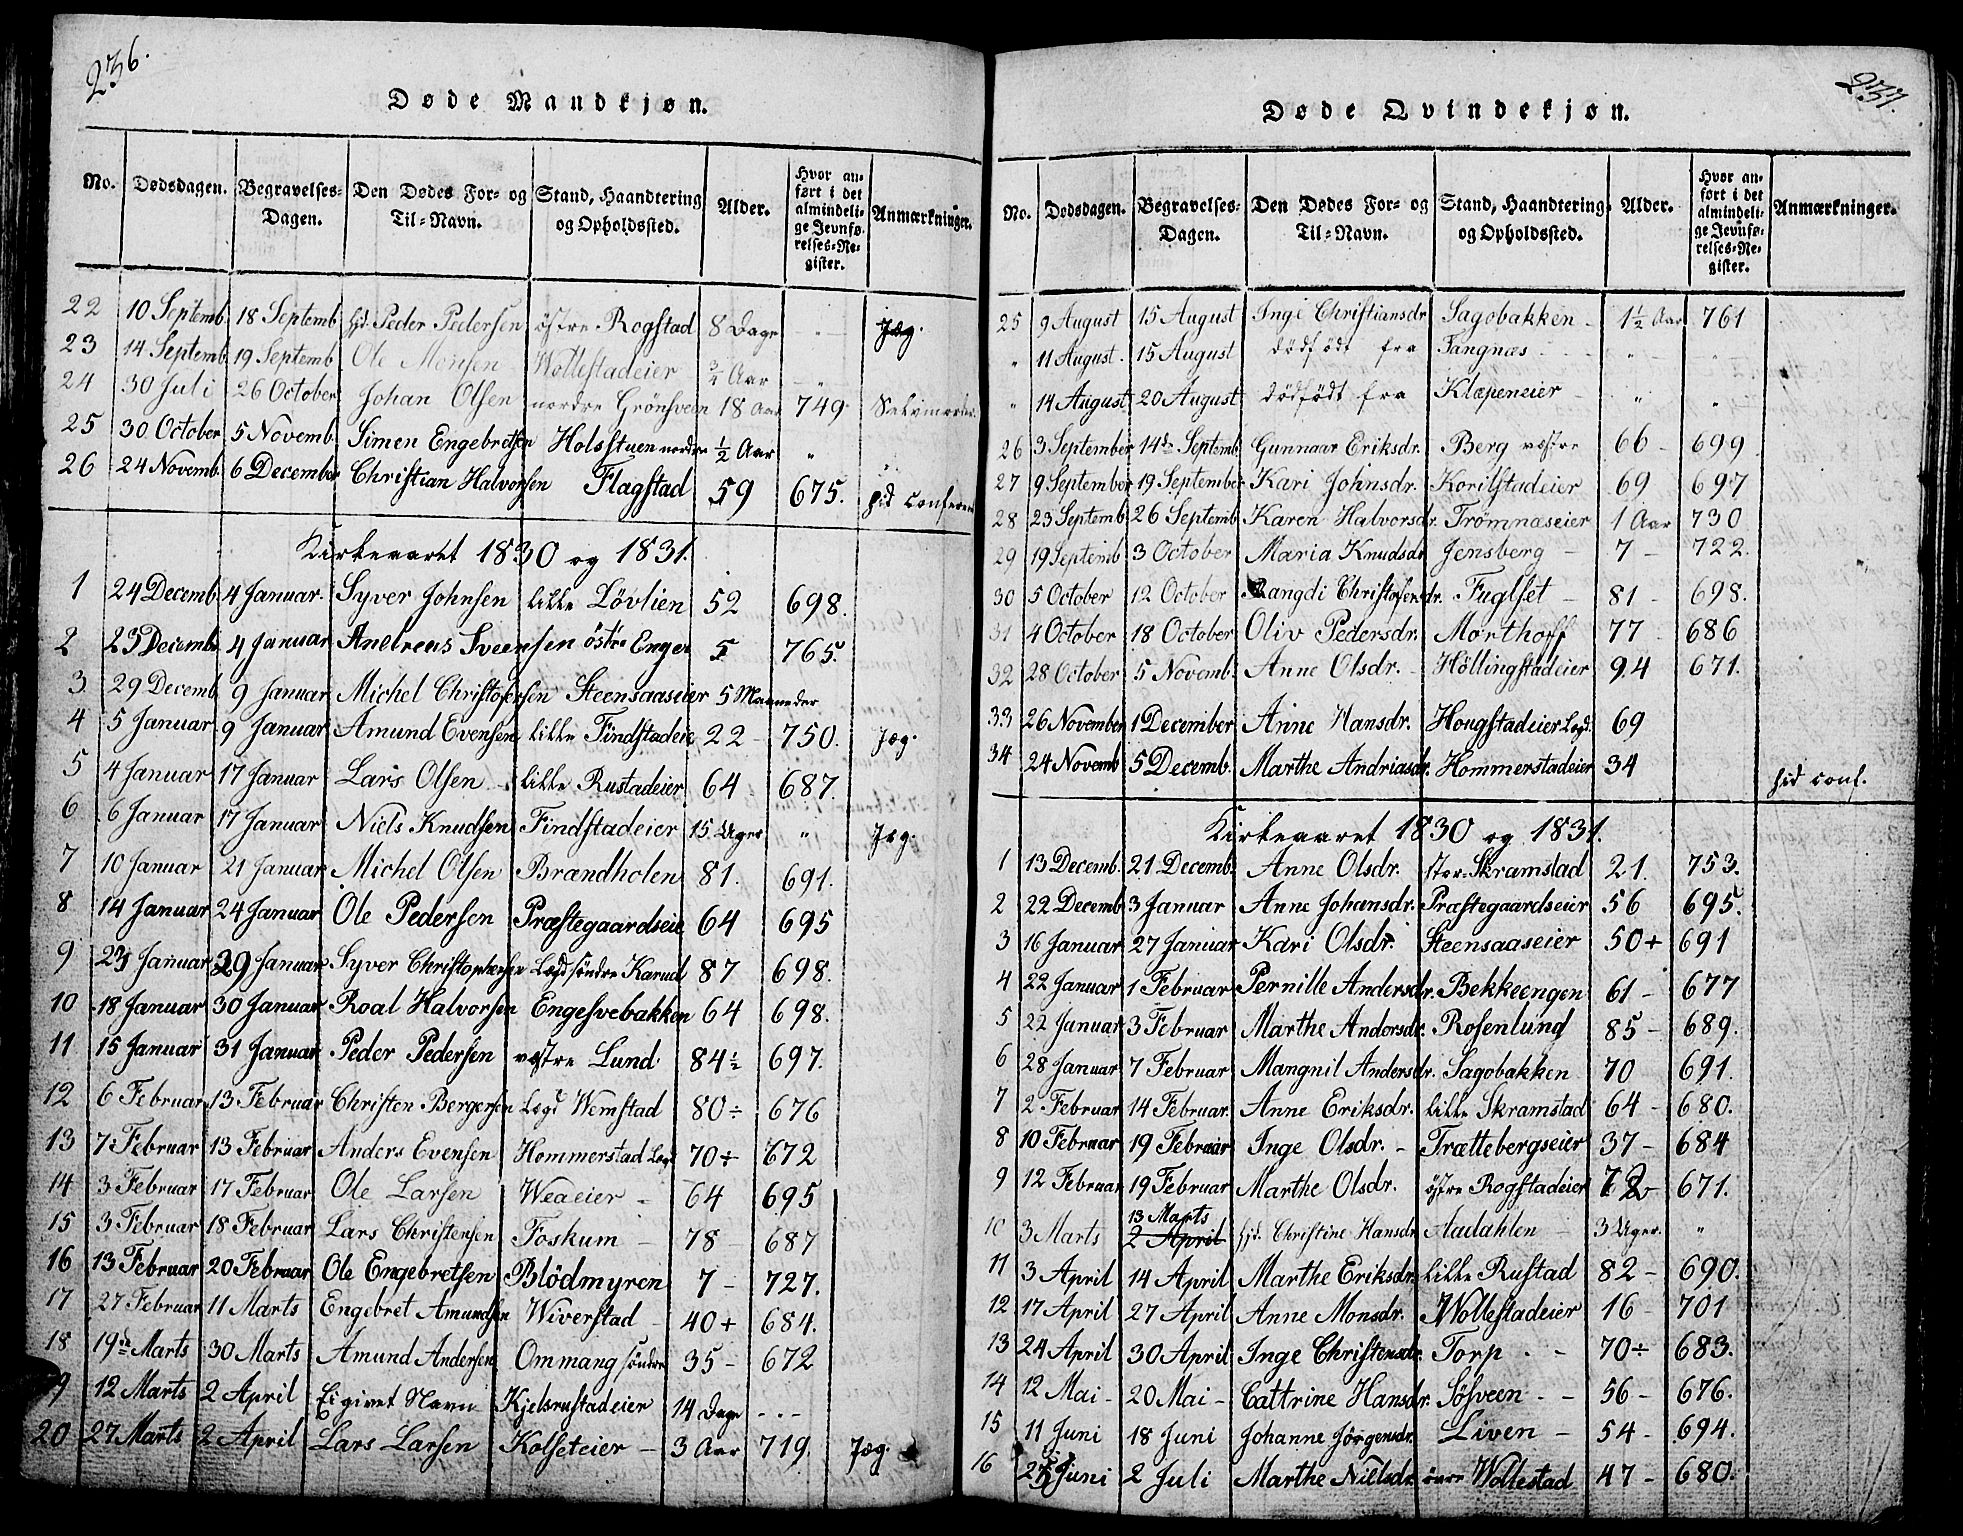 236.
Døde Mandkjøn.
No. Dødsdagen. Begravelses-Dagen. Den Dødes For- og Til-Navn. Stand, Haandtering og Opholdssted. Alder. Hvor anført i det almindelige Jevnførelses-Register. Anmærkninger.
22 10 Septemb. 18 Septemb. Peder Pedersen östre Rogstad 8 Dage Jæg.
23 14 Septemb. 19 Septemb Ole Monsen Wollestadeier 3/4 Aar "
24 30 Juli 26 October Johan Olsen nordre Grönsveen 18 Aar 749. Selvmorder.
25 30 October 5 Novemb. Simen Engebretsen Holsstuen nordre 1/2 Aar "
26 24 Novemb. 6 December Christian Halvorsen Flagstad 59 675. hid
Kirkeaaret 1830 og 1831.
1 24 Decemb. 4 Januar. Syver Johnsen lille Lövlien 52 698.
2 23 Decemb. 4 Januar Andreas Sveensen östre Enger 5 765.
3 29 Decemb. 9 Januar Michel Christofersen Steensaaseier 5 Maaneder
4 5 Januar. 9 Januar Amund Evensen lille Findstadeie 22 - 750. Jæg.
5 4 Januar 17 Januar Lars Olsen lille Rustadeier 64 687.
6 6 Januar 17 Januar Niels Knudsen Findstadeier 15 Uger " Jæg.
7 10 Januar 21 Januar Michel Olsen Brændholen 81. 691.
8 14 Januar 24 Januar Ole Pedersen Præstegaardseie 64 695
9 23 Januar 29 Januar Syver Christophersen Lægd söndre Karud 87 698.
10 18 Januar 30 Januar Roal Halvorsen Engesvebakken 64 698.
11 15 Januar 31 Januar Peder Pedersen væstre Lund. 84 ÷ 697.
12 6 Februar 13 Februar Christen Bergersen Lægd Wemstad 80 ÷ 676
13 7 Februar 13 Februar Anders Evensen Hommerstad Lægd 70 ÷ 672
14 3 Februar 17 Februar Ole Larsen Weaeier - 64 695
15 3 Februar 18 Februar Lars Christensen Foskum - 78 687
16 13 Februar 20 Februar Ole Engebretsen Blödmyren 7 - 727.
17 27 Februar 11 Marts Engebret Amundsen Wiverstad 40 + 684.
18 19de Marts 30 Marts Amund Andersen Ommang söndre 35 - 672
19 12 Marts 2 April Ei givet Navn Kjelsrustadeier 14 Dage - - -
20 27 Marts 2 April Lars Larsen Kolseteier - 3 Aar 719. Jæg.
237.
Døde Qvindekjøn.
No. Dødsdagen. Begravelses-Dagen. Den Dødes For- og Til-Navn. Stand, Haandtering og Opholdssted. Alder. Hvor anført i det almindelige Jevnførelses-Register. Anmærkninger.
25 9 August 15 August Inge Christiansdr Sagobakken - 1 1/2 Aar 761
" 11 August. 15 August dödfödt fra Tangnæs " "
" 14 August 20 August dödfödt fra Klæpeneier " "
26 3 September 14de Septemb. Gunnaar Eriksdr. Berg væstre 66 - 699
27 9 September 19 September Kari Johnsdr. Korilstadeier 69 697
28 23 Septemb. 26 Septemb Karen Halvorsdr. Trömnæseier 1 Aar 730
29 19 Septemb 3 October Maria Knudsdr Jensberg - 7 - 722.
30 5 October 12 October Rangdi Christofersdr. Fuglset - 81 - 698.
31 4 October 18 October Oliv Pedersdr. Morthoff 77 - 686
32 28 October 5 Novemb. Anne Olsdr. - Höllingstadeier 94 671.
33 26 November 1 December Anne Hansdr. Hougstadeier Lægd. 69
34 24 Novemb 5 Decemb. Marthe Andriasdr. Hommerstadeier 34 hid conf.
Kirkeaaret 1830 og 1831.
1 13 Decemb. 21 Decemb. Anne Olsdr. stor-Skramstad 21. 753.
2 22 Decemb 3 Januar Anne Johansdr. Præstegaardseier 56 695.
3 16 Januar 27 Januar Kari Olsdr. Steensaaseier 50 + 691
4 22 Januar 1 Februar Pernille Andersdr. Bekkeengen 61 - 677
5 22 Januar 3 Februar Marthe Andorsdr. Rosenlund 85 - 689.
6 28 Januar 7 Februar Mangnil Andersdr. Sagobakken 70 691.
7 2 Februar 14 Februar. Anne Eriksdr. lille Skramstad 64 - 680.
8 10 Februar 19 Februar Inge Olsdr. - Trættebergseier 37 - 684
9 12 Februar 19 Februar Marthe Olsdr. östre Rogstadeier 72 671.
10 3 Marts 13 Marts 2 April hjd. Christine Hansdr Aadahlen - 3 Uger. "
11 3 April 14 April Marthe Eriksdr. lille Rustad 82 - 690.
12 17 April 27 April Anne Monsdr. Wollestadeier 16 - 701
13 24 April 30 April Inge Christensdr. Torp - - 70 ÷ 683.
14 12 Mai - 20 Mai - Cattrine Hansdr. Sösveen - - 56 - 676.
15 11 Juni 18 Juni Johanne Jörgensdr. Liven - 54 - 694.
16 Juni 2 Juli Marthe Nielsdr. övre Wollestad 47 - 680.